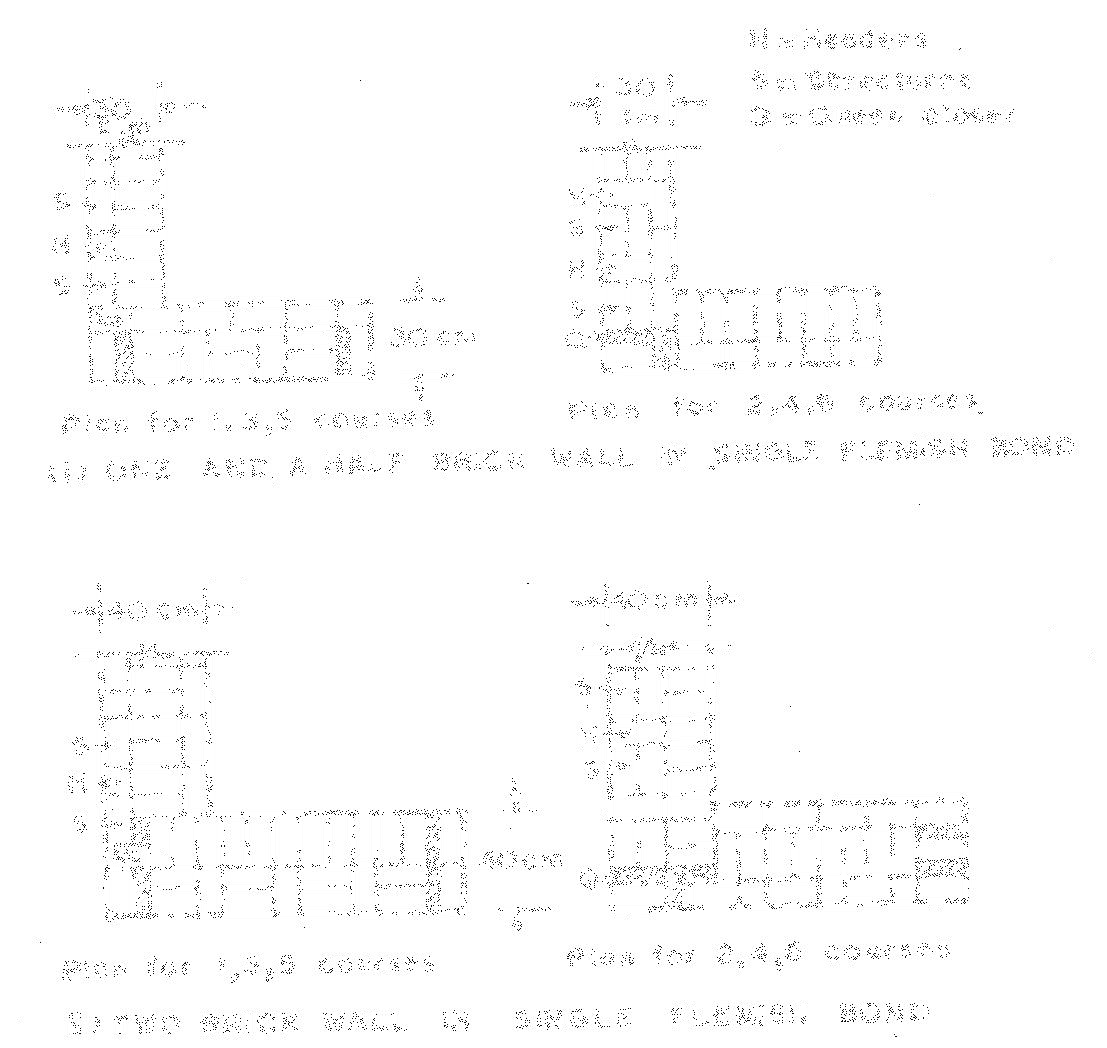 H = Headers
S = Stretcturs
Q = Queen Closer
30
cm
30
cm
S
H
S
H
S
H
S
Q
30 cm
Plan for 1,3,5 courses
Plan for 2,4,6 courses
ONE AND A HALF BRICK WALL IN SINGLE FLEMISH BOND
40 cm
40 cm
S
H
S
S
H
S
40 cm
Q
Plan for 1,3,5 courses
Plan for 2,4,6 courses
TWO BRICK WALL IN SINGLE FLEMISH BOND